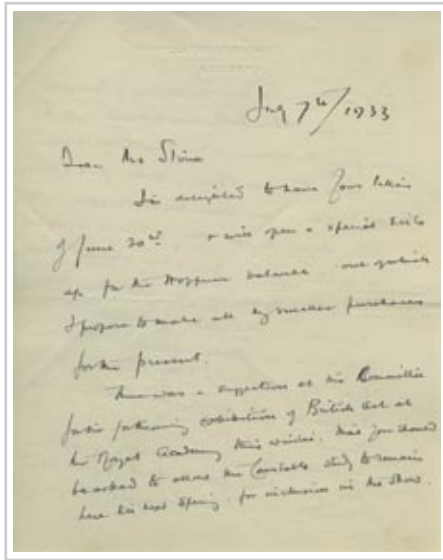 July 7th/1933
Dear Mr Stone
I'm delighted to have your letter
of June 20th & will open a special
up for the Hoppner balance out of which
I propose to make all my smaller purchases
for the present.
There was a suggestion at the Committee
for the forthcoming exhibition of British Art at
the Royal Academy this winter, that you should
be asked to allow the Constable study to remain
here till next Spring, for inclusion in the show.